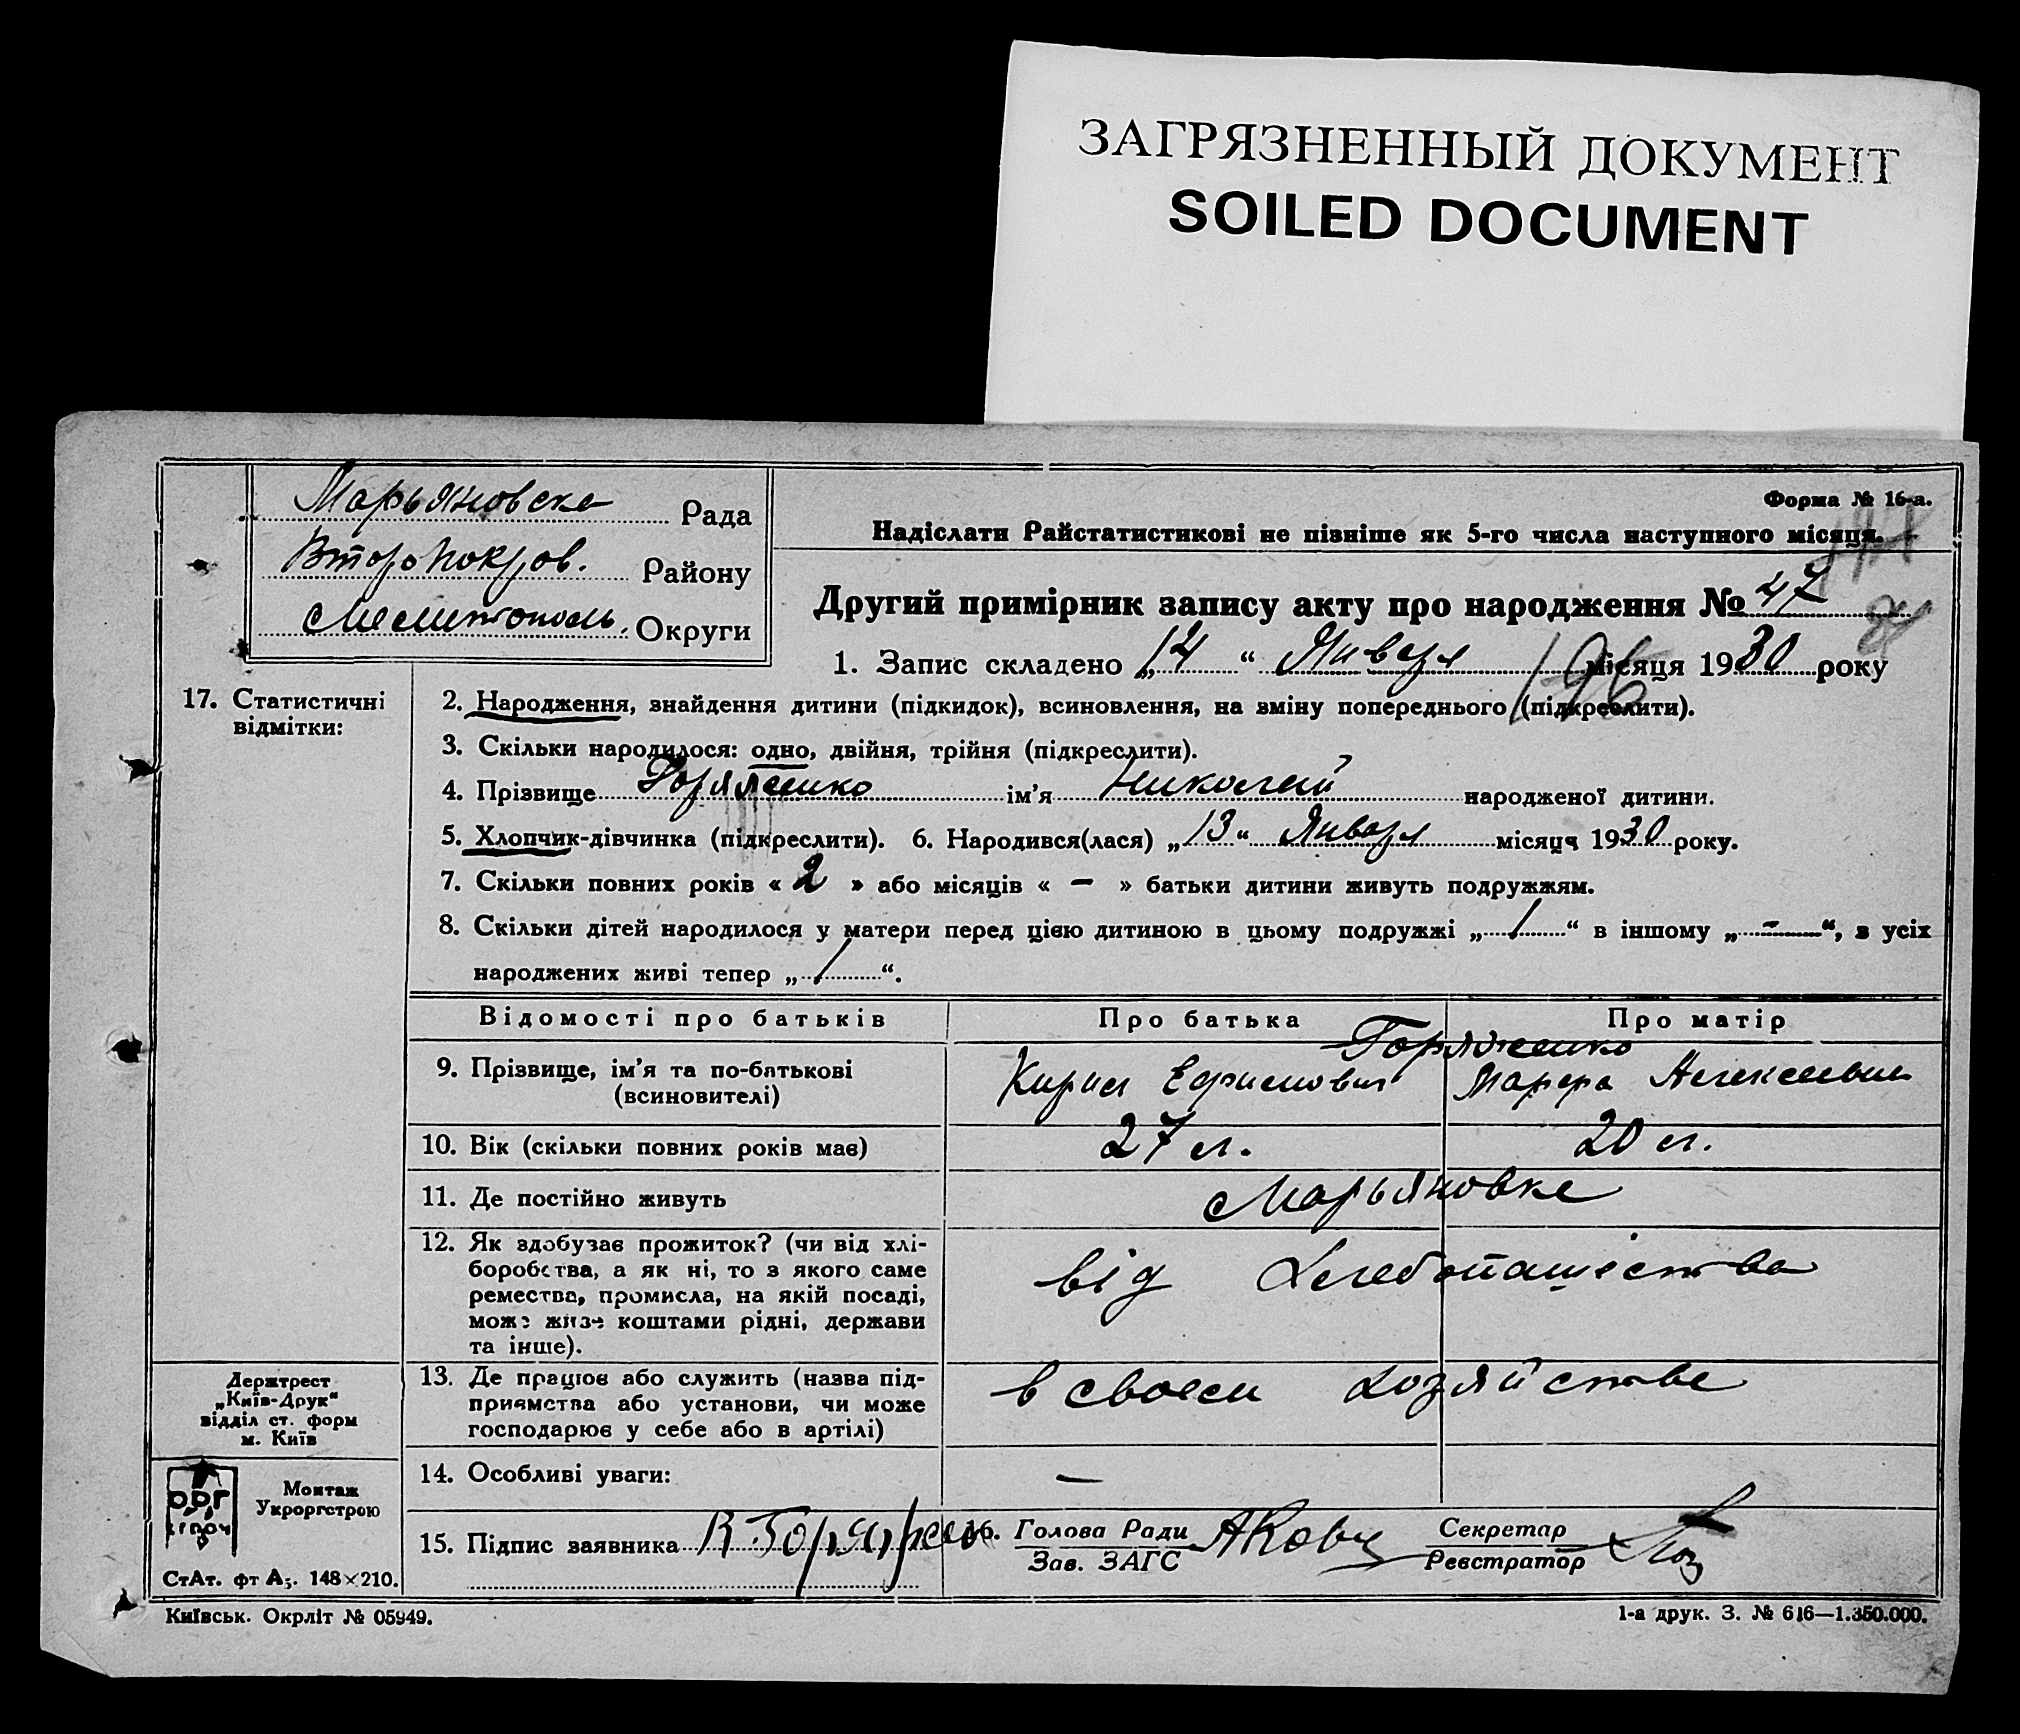 ЗАГРЯЗНЕННЫЙ ДОКУМЕНТ
SOILED DOCUMENT
Марьяновска Рада
Второпокров. Району
Мелитополь. Округи
Форма № 16-а.
Надіслати Райстатистикові не пізніше як 5-го числа наступного місяця.
Другий примірник запису акту про народження № 47
1. Запис складено „14 “ Января місяця 1930 року
196
17. Статистичні
відмітки:
2. Народження, знайдення дитини (підкидок), всиновлення, на зміну попереднього (підкреслити).
3. Скільки народилося: одно, двійня, трійня (підкреслити).
4. Прізвище ім’я Николай народженої дитини.
5. Хлопчик-дівчинка (підкреслити). 6. Народився(лася) „13“ Января місяця 1930 року.
7. Скільки повних років « 2 » або місяців « – » батьки дитини живуть подружжям.
8. Скільки дітей народилося у матери перед цією дитиною в цьому подружжі „1“ в іншому „-“, з усіх
народжених живі тепер „1“.
Відомості про батьків Про батька Про матір
9. Прізвище, ім’я та по-батькові
(всиновителі)
Кирил Ефимович Марфа
10. Вік (скільки повних років має) 27 л. 20 л.
11. Де постійно живуть Марьяновке
12. Як здобуває прожиток? (чи від хлі-
боробства, а як ні, то з якого саме
ремества, промисла, на якій посаді,
може живе коштами рідні, держави
та інше).
від хлебопашества
13. Де працює або служить (назва під-
приємства або установи, чи може
господарює у себе або в артілі)
в своем хозяйстве
14. Особливі уваги: —
15. Підпис заявника
16. Голова Ради
Зав. ЗАГС
Секретар
Реєстратор
Держтрест
„Київ-Друк“
відділ ст. форм
м. Київ
Монтаж
Укроргстрою
СтАт. фт А5. 148×210.
Київськ. Окрліт № 05949.
1-а друк. З. № 616—1.350.000.